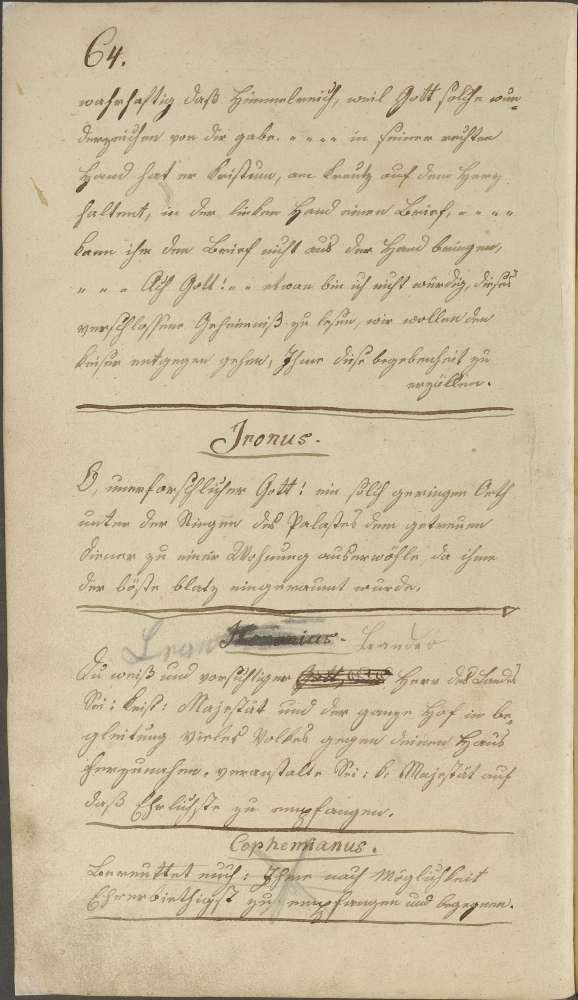 64.
wahrhaftig daß Himmelreich, weil Gott solche wun=
derzeichen von dir gabe. „ „ „ „ in seiner rechten
Hand hat er Kristum, am Kreutz auf dem Herz
haltent, in der linken Hand einen Brief, „ „ „ „
kann ihm den Brief nicht aus der Hand bringen,
„ „ „ Ach Gott! „ „ etwan bin ich nicht würdig, dieses
verschlossene Geheimniß zu lesen, wir wollen dem
Keiser entgegen gehen, Ihme diese begebenheit zu
erzällen.
Ironus.
O, unerforschlicher Gott! ein solch geringen Orth
unter der Stiegen des Palastes dem getreuen
Diener zu einer Wohnung auserwöhle da ihme
der böste blatz eingeraumt wurde.
Leandeo
Du weiß und vorsichtiger Herr des Landes
Sei: Keis: Majestät und der ganze Hof in be=
gleitung vieles Volkes gegen deinen Haus
herzunahen. veranstalte Sei: K: Majestät auf
daß Ehrlichste zu empfangen.
Cephemianus.
Bereuttet euch: Ihme nach Möglichkeit
Ehrerbiethigst zu empfangen und begegnen.